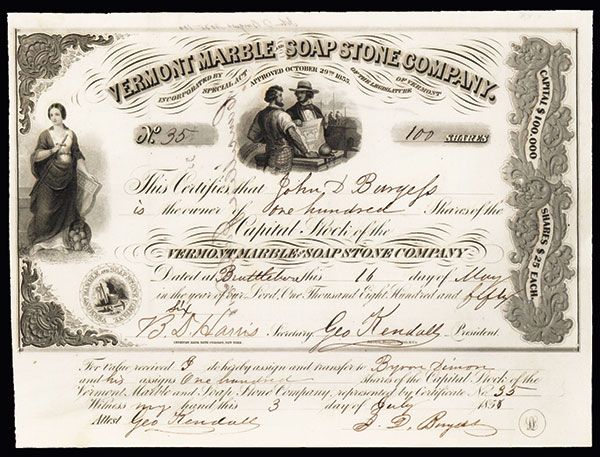 VERMONT MARBLE AND SOAP STONE COMPANY.
INCORPORATED BY SPECIAL ACT APPROVED OCTOBER 29TH 1855. OF THE LEGISLATURE OF VERMONT
No. 35
100 SHARES
CAPITAL $100,000
SHARES $25 EACH.
This Certifies that John D Burgess
is the owner of one hundred Shares of the
Capital Stock of the
VERMONT MARBLE AND SOAP STONE COMPANY
Dated at Brattleboro this 16 day of May
in the year of Our Lord, One Thousand Eight Hundred and fifty
six
B. D. Harris Secretary. Geo Kendall President.
For value received I do hereby assign and transfer to Byron Dimon
and his assigns One hundred shares of the Capital Stock of the
Vermont Marble and Soap Stone Company, represented by Certificate No. 35
Witness my hand this 3 day of July 1856
Attest Geo Kendall J. D. Burgess